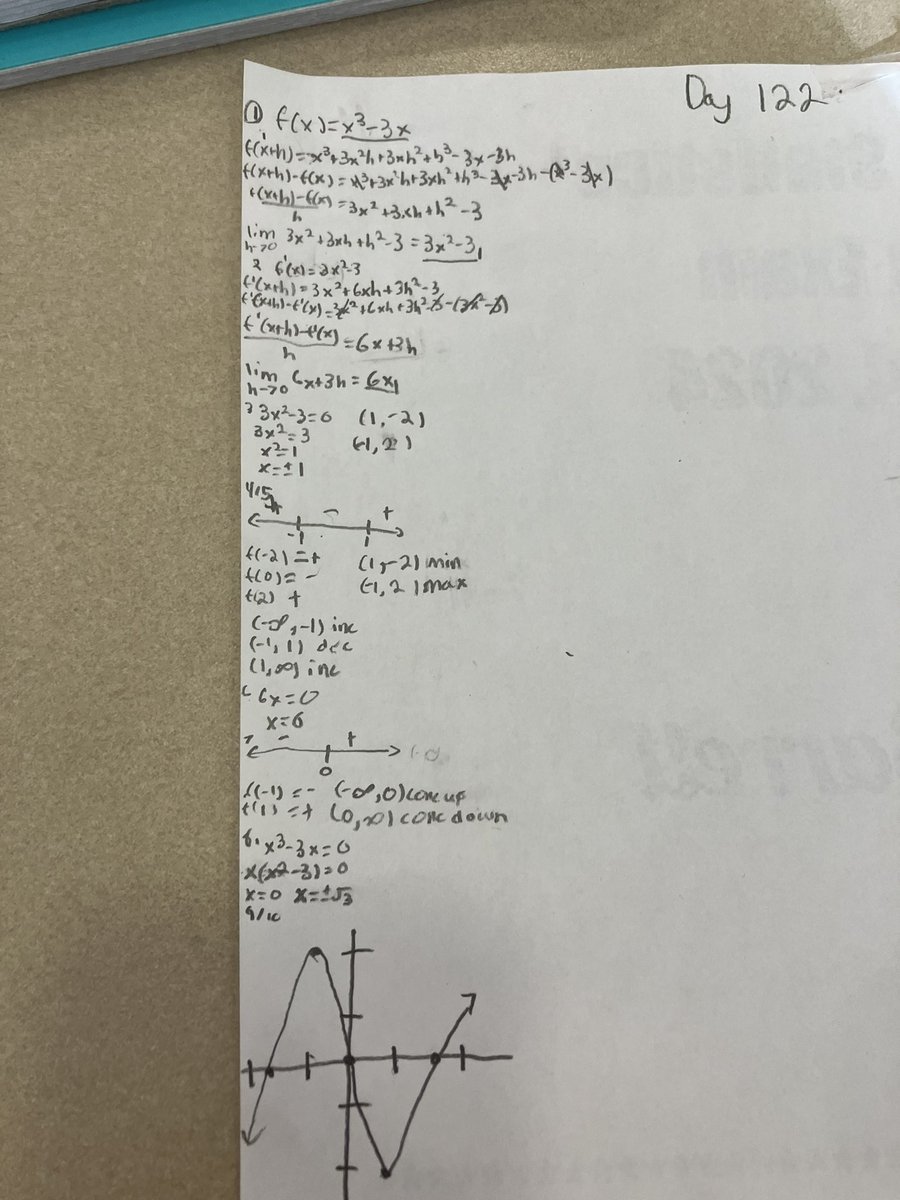 Day 122
① f(x)=x³-3x
f(x+h)=x³+3x²h+3xh²+h³-3x-3h
f(x+h)-f(x)=x³+3x²h+3xh²+h³-3x-3h-(x³-3x)
f(x+h)-f(x)/h=3x²+3xh+h²-3
lim h→0 3x²+3xh+h²-3=3x²-3
2 f'(x)=3x²-3
f'(x+h)=3x²+6xh+3h²-3
f'(x+h)-f'(x)=3x²+6xh+3h²-3-(3x²-3)
f'(x+h)-f'(x)/h=6x+3h
lim h→0 6x+3h=6x
3 3x²-3=0 (1,-2)
3x²=3 (-1,2)
x²=1
x=±1
4/5
+ - +
-1 1
f(-2)=+ (1,-2) min
f(0)=- (-1,2) max
f(2) +
(-∞,-1) inc
(-1,1) dec
(1,∞) inc
6 6x=0
x=0
7 - +
0
f(-1)=- (-∞,0) conc up
f'(1)=+ (0,∞) conc down
8. x³-3x=0
x(x²-3)=0
x=0 x=±√3
9/10